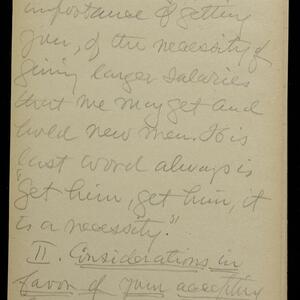 importance of getting
you, of the necessity of
giving larger salaries
that we may get and
hold new men. His
last word always is
"Get him, get him, it
is a necessity."
II. Considerations in
favor of your accepting